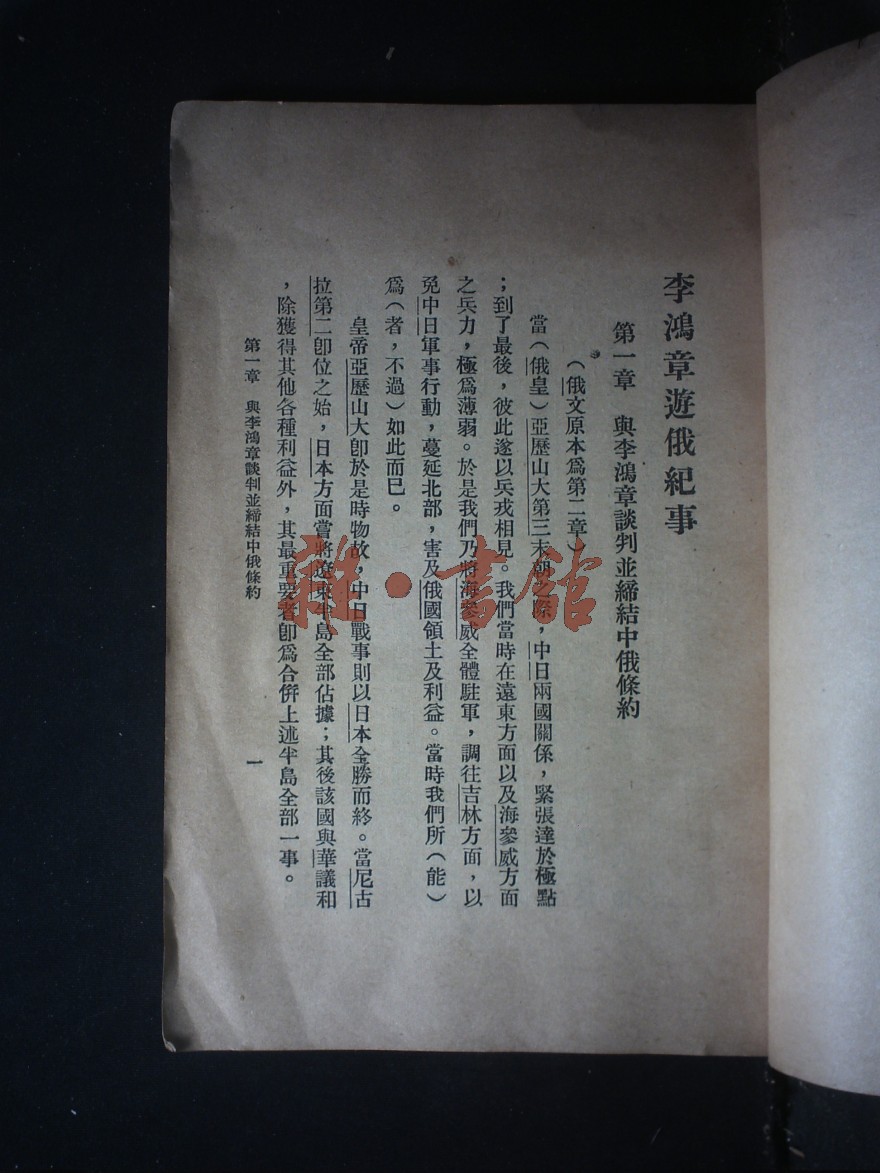 李鴻章遊俄紀事
第一章　與李鴻章談判並締結中俄條約
（俄文原本爲第二章）
當（俄皇）亞歷山大第三末朝之際，中日兩國關係，緊張達於極點
；到了最後，彼此遂以兵戎相見。我們當時在遠東方面以及海參威方面
之兵力，極爲薄弱。於是我們乃將海參威全體駐軍，調往吉林方面，以
免中日軍事行動，蔓延北部，害及俄國領土及利益。當時我們所（能）
爲（者，不過）如此而已。
皇帝亞歷山大卽於是時物故，中日戰事則以日本全勝而終。當尼古
拉第二卽位之始，日本方面嘗將遼東半島全部佔據；其後該國與華議和
，除獲得其他各種利益外，其最重要者卽爲合併上述半島全部一事。
第一章　與李鴻章談判並締結中俄條約
一
雜·書館